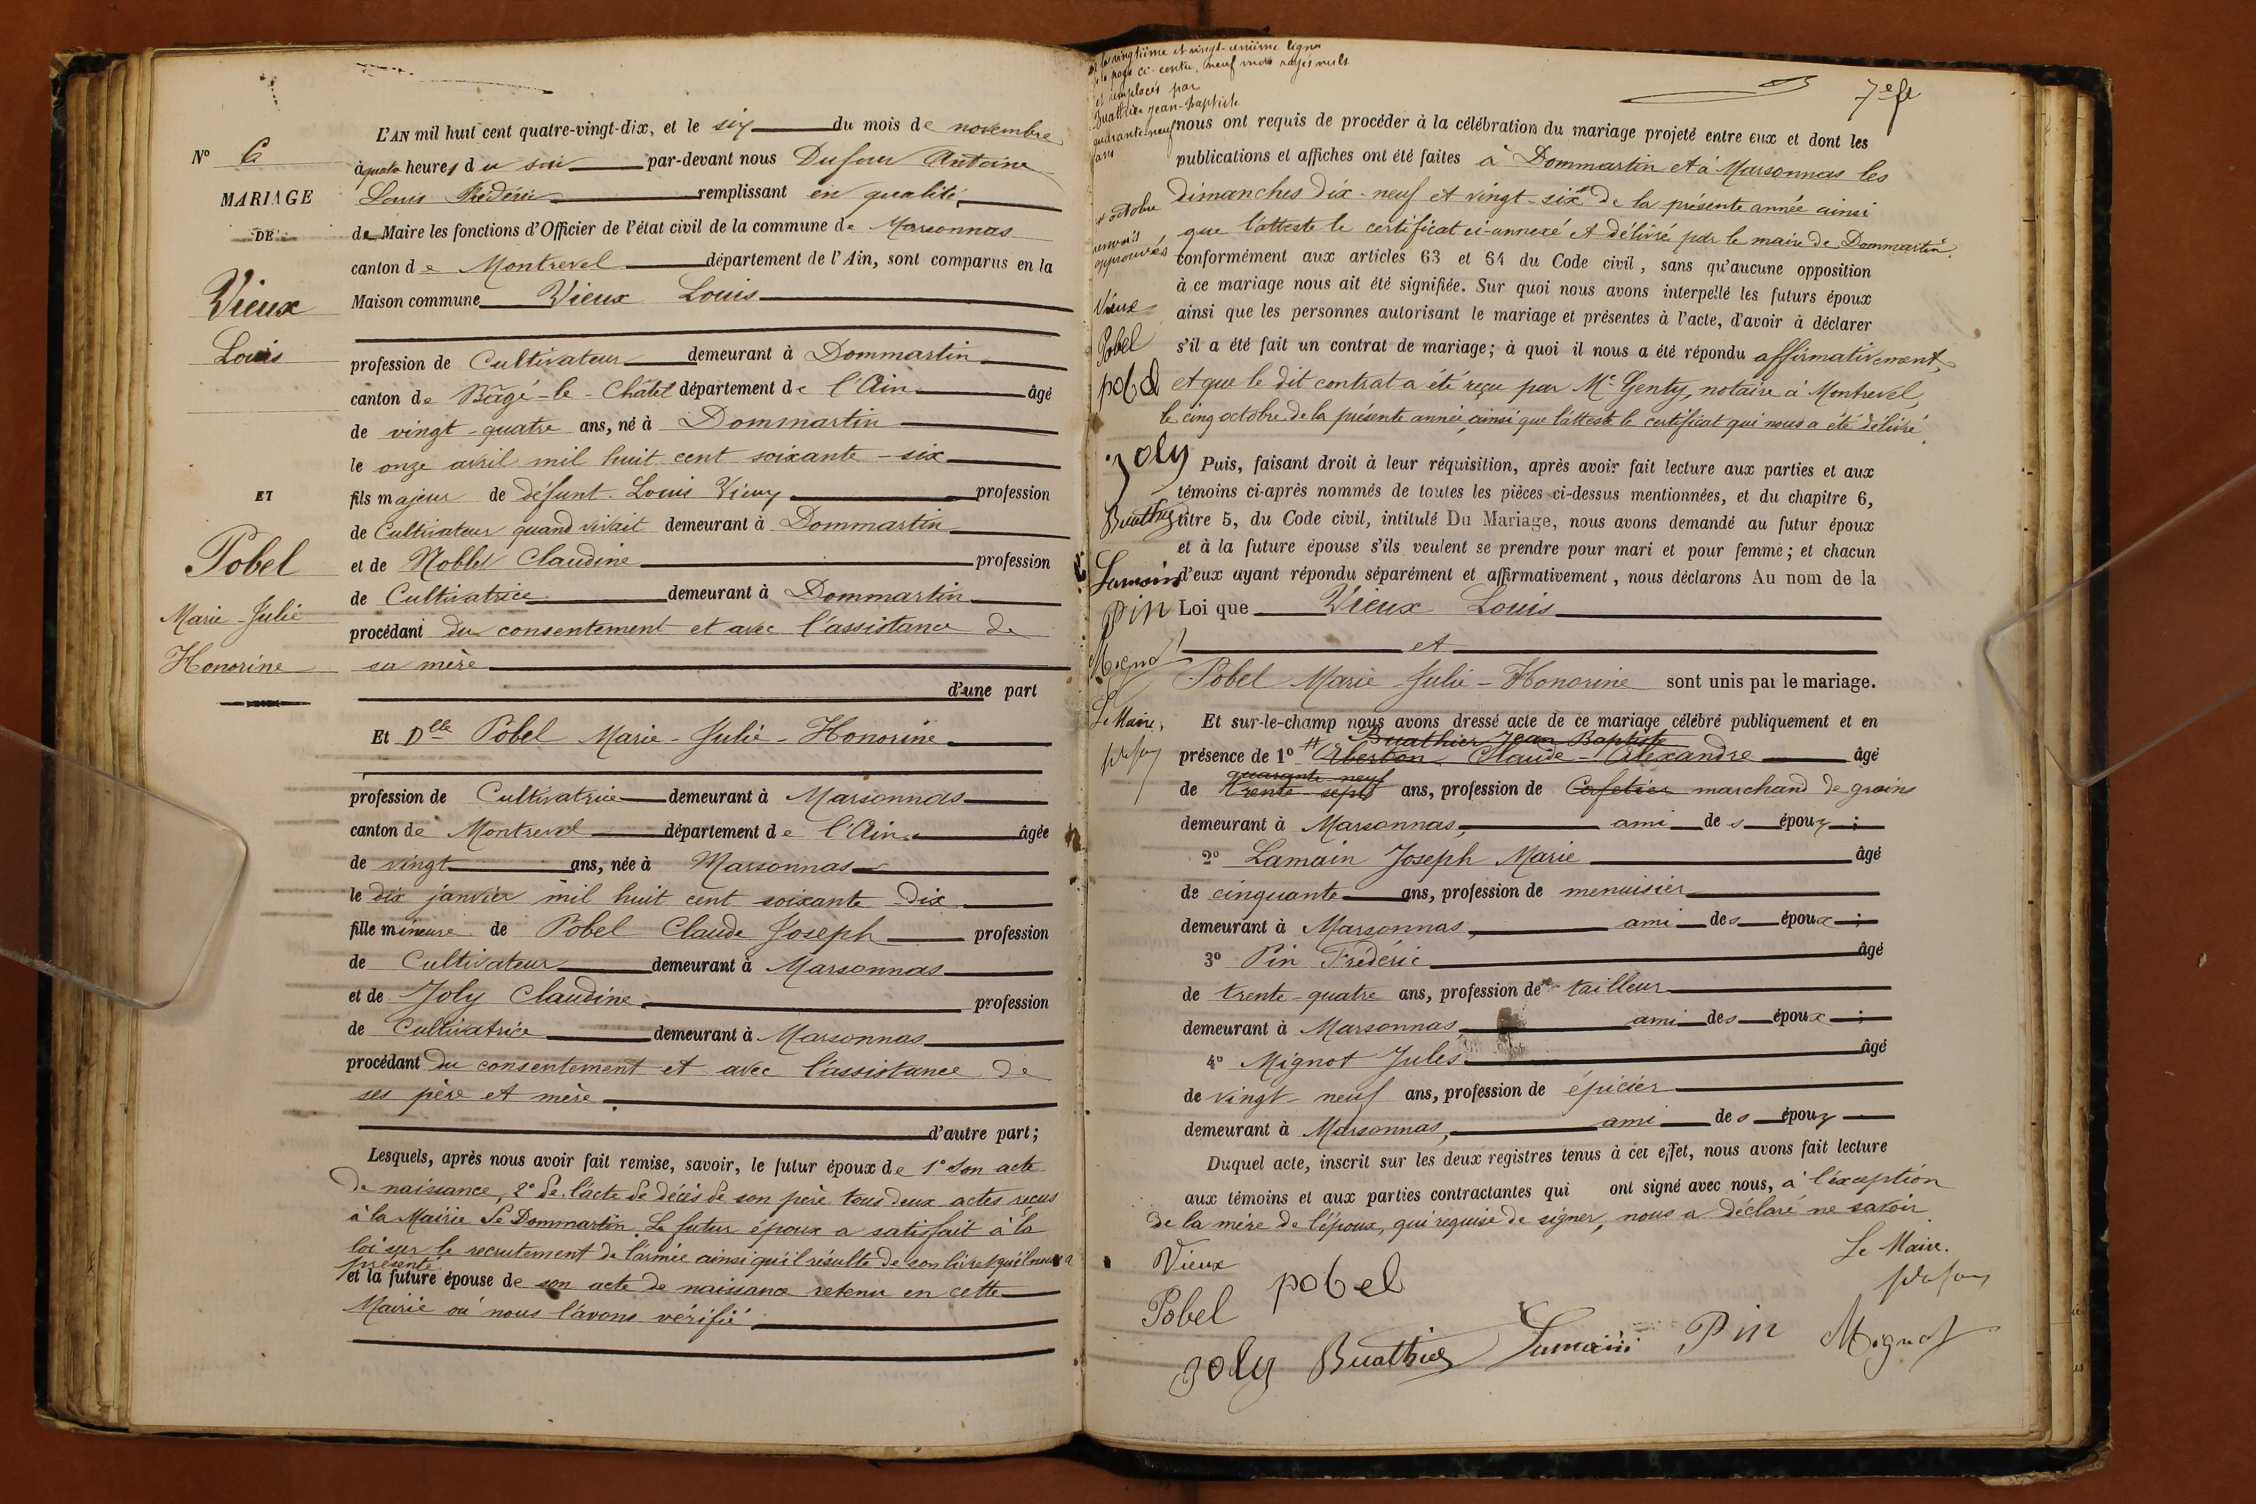 N° 6
MARIAGE
DE
Vieux
Louis
ET
Pobel
Marie-Julie
Honorine
L'AN mil huit cent quatre-vingt-dix, et le six du mois de novembre
à quatre heures du soir par-devant nous Dufour Antoine
Louis Frédéric remplissant en qualité
de Maire les fonctions d'Officier de l'état civil de la commune de Marsonnas
canton de Montrevel département de l'Ain, sont comparus en la
Maison commune Vieux Louis
profession de Cultivateur demeurant à Dommartin
canton de Bâgé-le-Châtel département de l'Ain âgé
de vingt-quatre ans, né à Dommartin
le onze avril mil huit cent soixante-six
fils majeur de défunt Louis Vieux profession
de Cultivateur quand vivait demeurant à Dommartin
et de Noblet Claudine profession
de Cultivatrice demeurant à Dommartin
procédant du consentement et avec l'assistance de
sa mère
d'une part
Et Dlle Pobel Marie-Julie-Honorine
profession de Cultivatrice demeurant à Marsonnas
canton de Montrevel département de l'Ain âgée
de vingt ans, née à Marsonnas
le dix janvier mil huit cent soixante-dix
fille mineure de Pobel Claude Joseph profession
de Cultivateur demeurant à Marsonnas
et de Joly Claudine profession
de Cultivatrice demeurant à Marsonnas
procédant du consentement et avec l'assistance de
ses père et mère
d'autre part;
Lesquels, après nous avoir fait remise, savoir, le futur époux de 1° son acte
de naissance, 2° de l'acte de décès de son père tous deux actes reçus
à la Mairie de Dommartin. Le futur époux a satisfait à la
loi sur le recrutement de l'armée ainsi qu'il résulte de son livret qu'il nous a
présenté
et la future épouse de son acte de naissance retenu en cette
Mairie où nous l'avons vérifié
à la vingtième et vingt-unième ligne
de la page ci-contre, neuf mots rayés nuls
et remplacés par
Buathier Jean-Baptiste
quarante-neuf
ans
# octobre
renvois
approuvés
Vieux
Pobel
pobel
joly
Buathier
Lamain
Pin
Mignot
Le Maire,
Dufour
7e ft
nous ont requis de procéder à la célébration du mariage projeté entre eux et dont les
publications et affiches ont été faites à Dommartin et à Marsonnas les
dimanches dix-neuf et vingt-six # de la présente année ainsi
que l'atteste le certificat ci-annexé et délivré par le maire de Dommartin.
conformément aux articles 63 et 64 du Code civil, sans qu'aucune opposition
à ce mariage nous ait été signifiée. Sur quoi nous avons interpellé les futurs époux
ainsi que les personnes autorisant le mariage et présentes à l'acte, d'avoir à déclarer
s'il a été fait un contrat de mariage; à quoi il nous a été répondu affirmativement,
et que le dit contrat a été reçu par Me Genty, notaire à Montrevel,
le cinq octobre de la présente année, ainsi que l'atteste le certificat qui nous a été délivré.
Puis, faisant droit à leur réquisition, après avoir fait lecture aux parties et aux
témoins ci-après nommés de toutes les pièces ci-dessus mentionnées, et du chapitre 6,
titre 5, du Code civil, intitulé Du Mariage, nous avons demandé au futur époux
et à la future épouse s'ils veulent se prendre pour mari et pour femme; et chacun
d'eux ayant répondu séparément et affirmativement, nous déclarons Au nom de la
Loi que Vieux Louis
et
Pobel Marie Julie-Honorine sont unis par le mariage.
Et sur-le-champ nous avons dressé acte de ce mariage célébré publiquement et en
Buathier Jean Baptiste
présence de 1° # Eberton Claude-Alexandre âgé
quarante neuf
de trente-sept ans, profession de Cafetier marchand de grains
demeurant à Marsonnas, ami des époux;
2° Lamain Joseph Marie âgé
de cinquante ans, profession de menuisier
demeurant à Marsonnas, ami des époux;
3° Pin Frédéric âgé
de trente-quatre ans, profession de tailleur
demeurant à Marsonnas ami des époux;
4° Mignot Jules âgé
de vingt-neuf ans, profession de épicier
demeurant à Marsonnas, ami des époux
Duquel acte, inscrit sur les deux registres tenus à cet effet, nous avons fait lecture
aux témoins et aux parties contractantes qui ont signé avec nous, à l'exception
de la mère de l'époux, qui requise de signer, nous a déclaré ne savoir
Le Maire.
Vieux
pobel
Dufour
Pobel
joly Buathier Lamain Pin Mignot